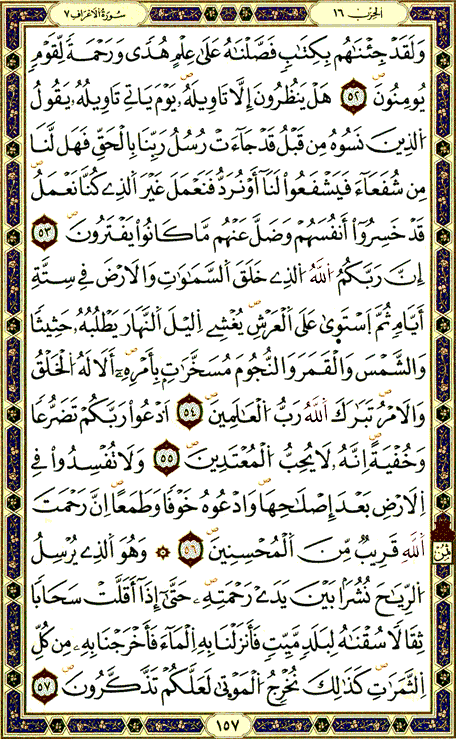 الحزب ١٦
سورة الأعراف ٧
وَلَقَدْ جِئْنَٰهُم بِكِتَٰبٍ فَصَّلْنَٰهُ عَلَىٰ عِلْمٍ هُدًى وَرَحْمَةً لِّقَوْمٍ
يُومِنُونَ ٥٢ هَلْ يَنظُرُونَ إِلَّا تَاوِيلَهُۥ يَوْمَ يَاتِے تَاوِيلُهُۥ يَقُولُ
اُلذِينَ نَسُوهُ مِن قَبْلُ قَدْ جَآءَتْ رُسُلُ رَبِّنَا بِالْحَقِّ فَهَل لَّنَا
مِن شُفَعَآءَ فَيَشْفَعُواْ لَنَآ أَوْ نُرَدُّ فَنَعْمَلَ غَيْرَ اَلذِے كُنَّا نَعْمَلُ
قَدْ خَسِرُوٓاْ أَنفُسَهُمْ وَضَلَّ عَنْهُم مَّا كَانُواْ يَفْتَرُونَ ٥٣
إِنَّ رَبَّكُمُ اُللَّهُ اُلذِے خَلَقَ اَلسَّمَٰوَٰتِ وَالَارْضَ فِے سِتَّةِ
أَيَّامٍ ثُمَّ اَسْتَوَىٰ عَلَى اَلْعَرْشِ يُغْشِے اِليْلَ اَلنَّهَارَ يَطْلُبُهُۥ حَثِيثًا
وَالشَّمْسَ وَالْقَمَرَ وَالنُّجُومَ مُسَخَّرَٰتٍ بِأَمْرِهِۦٓ أَلَا لَهُ اُلْخَلْقُ
وَالَامْرُ تَبَٰرَكَ اَللَّهُ رَبُّ اُلْعَٰلَمِينَ ٥٤ اَدْعُواْ رَبَّكُمْ تَضَرُّعًا
وَخُفْيَةً اِنَّهُۥ لَا يُحِبُّ اُلْمُعْتَدِينَ ٥٥ وَلَا تُفْسِدُواْ فِے
اِلَارْضِ بَعْدَ إِصْلَٰحِهَا وَادْعُوهُ خَوْفًا وَطَمَعًا اِنَّ رَحْمَتَ
اَللَّهِ قَرِيبٌ مِّنَ اَلْمُحْسِنِينَ ٥٦ ۞ وَهُوَ اَلذِے يُرْسِلُ
اُلرِّيَٰحَ نُشُرًا بَيْنَ يَدَےْ رَحْمَتِهِۦ حَتَّىٰٓ إِذَآ أَقَلَّتْ سَحَابًا
ثِقَالًا سُقْنَٰهُ لِبَلَدٍ مَّيِّتٍ فَأَنزَلْنَا بِهِ اِلْمَآءَ فَأَخْرَجْنَا بِهِۦ مِن كُلِّ
اِلثَّمَرَٰتِ كَذَٰلِكَ نُخْرِجُ اُلْمَوْتَىٰ لَعَلَّكُمْ تَذَّكَّرُونَ ٥٧
ثمن
١٥٧